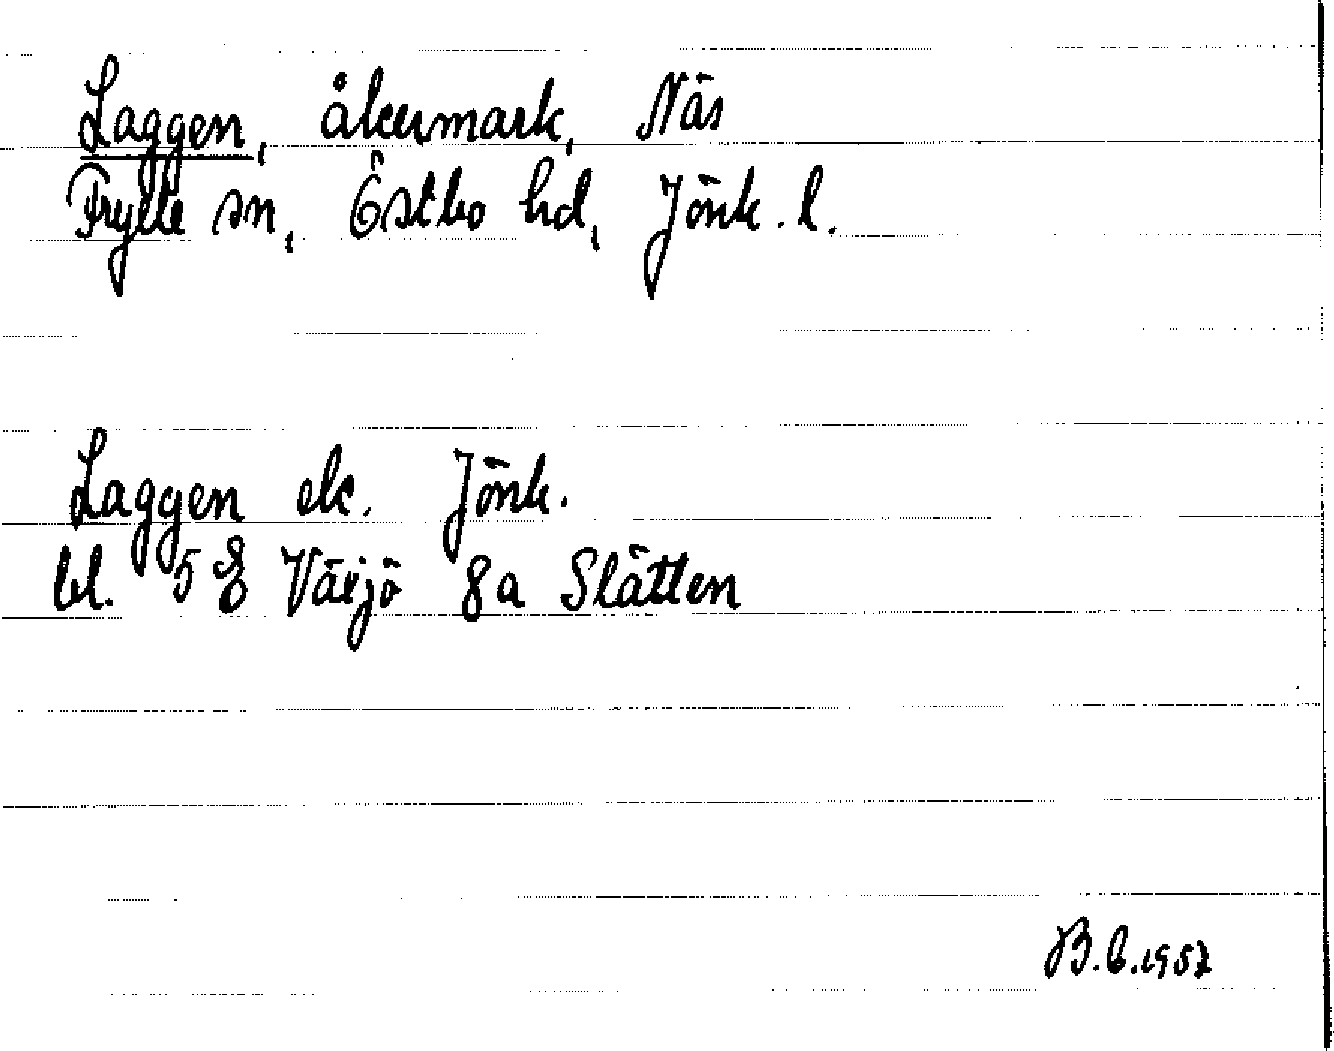 Laggen, åkermark, Näs
Frylle sn, Östbo hd, Jönk. l.
Laggen ek. Jönk.
bl. 5 E Växjö 8a Slätten
B.C.1957